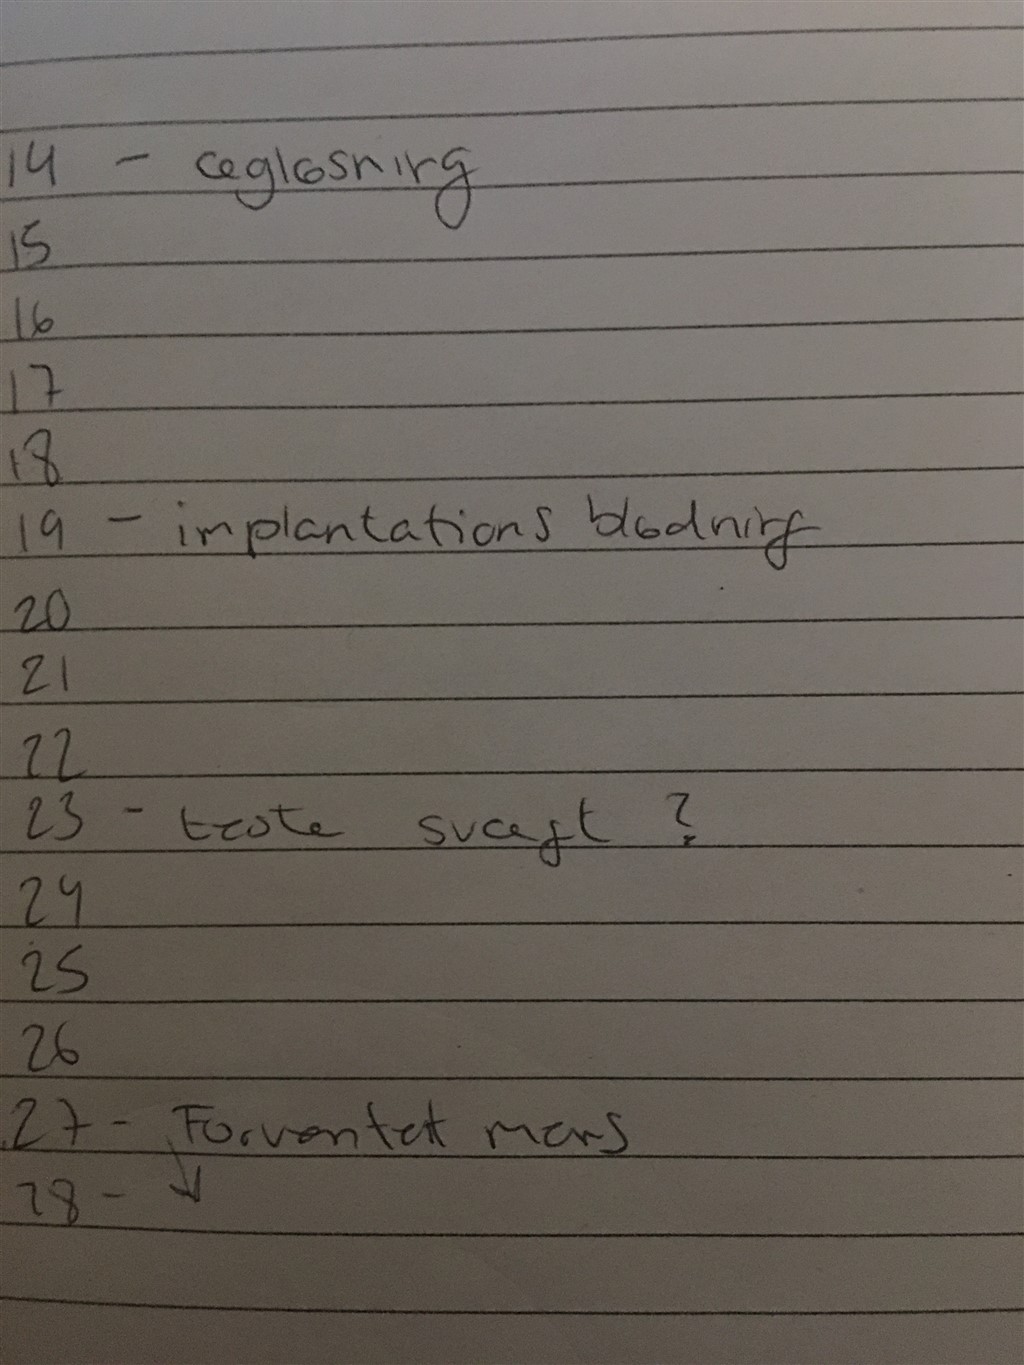 14 - ægløsning
15
16
17
18
19 - implantations blødning
20
21
22
23 - teste svagt ?
24
25
26
27 - Forventet mens
28 - ↓